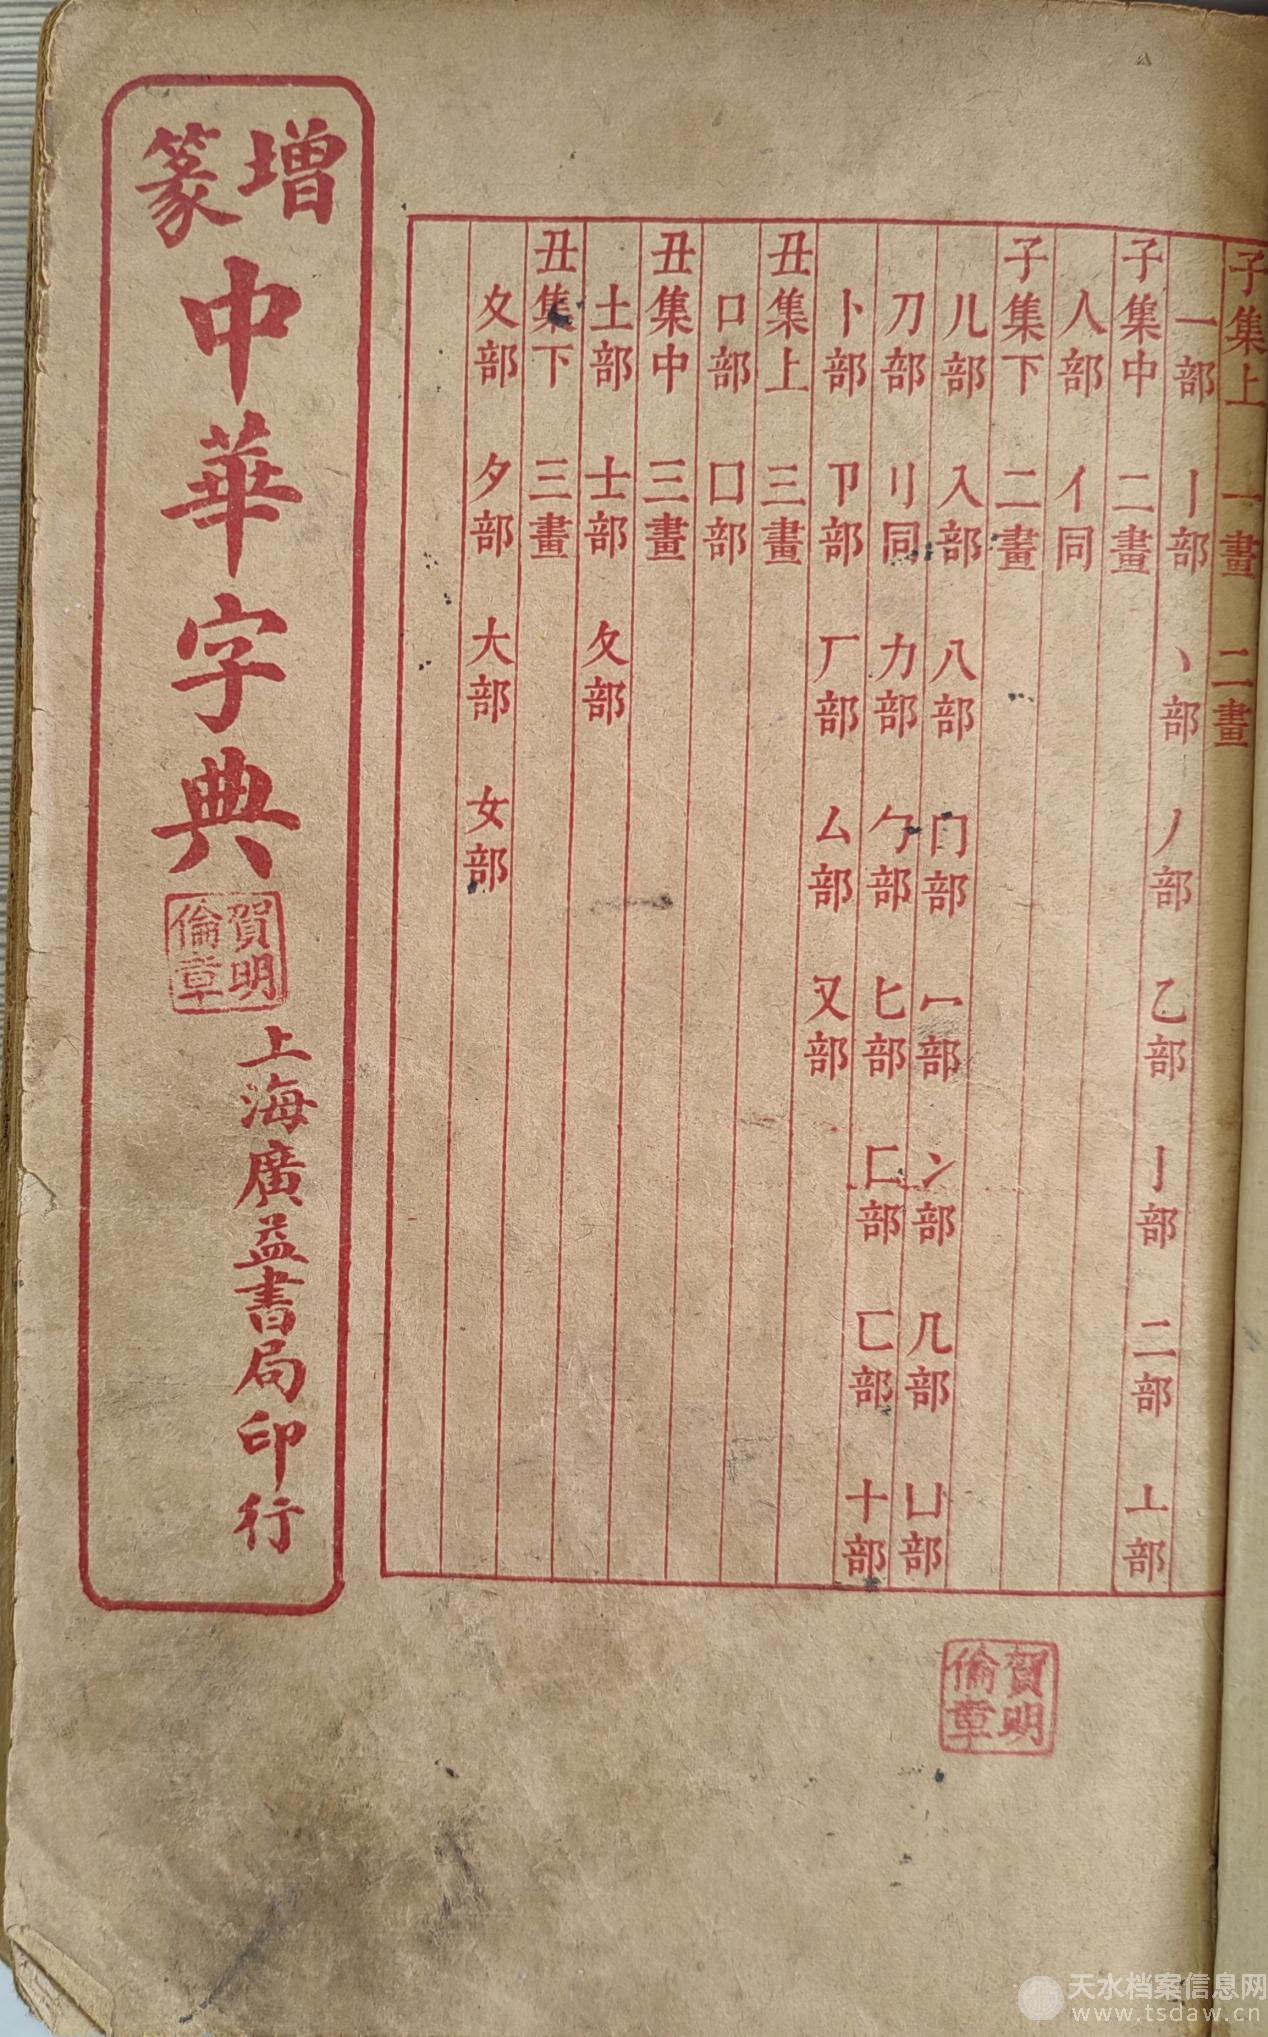 子集上 一畫 二畫
一部 丨部 丶部 丿部 乙部 亅部 二部 亠部
子集中 二畫
人部 亻同
子集下 二畫
儿部 入部 八部 冂部 冖部 冫部 几部 凵部
刀部 刂同 力部 勹部 匕部 匚部 匸部 十部
卜部 卩部 厂部 厶部 又部
丑集上 三畫
口部 囗部
丑集中 三畫
土部 士部 夂部
丑集下 三畫
夊部 夕部 大部 女部
增篆中華字典
賀明倫章
上海廣益書局印行
賀明倫章
天水档案信息网
www.tsdaw.cn